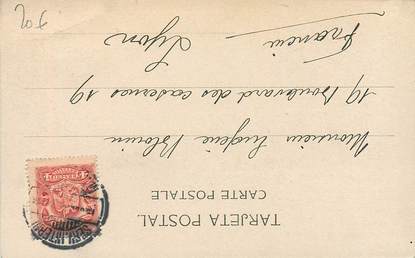 TARJETA POSTAL
CARTE POSTALE
Monsieur Eugène Blouin
19 Boulevard des casernes 19
Lyon
Francia
20 €